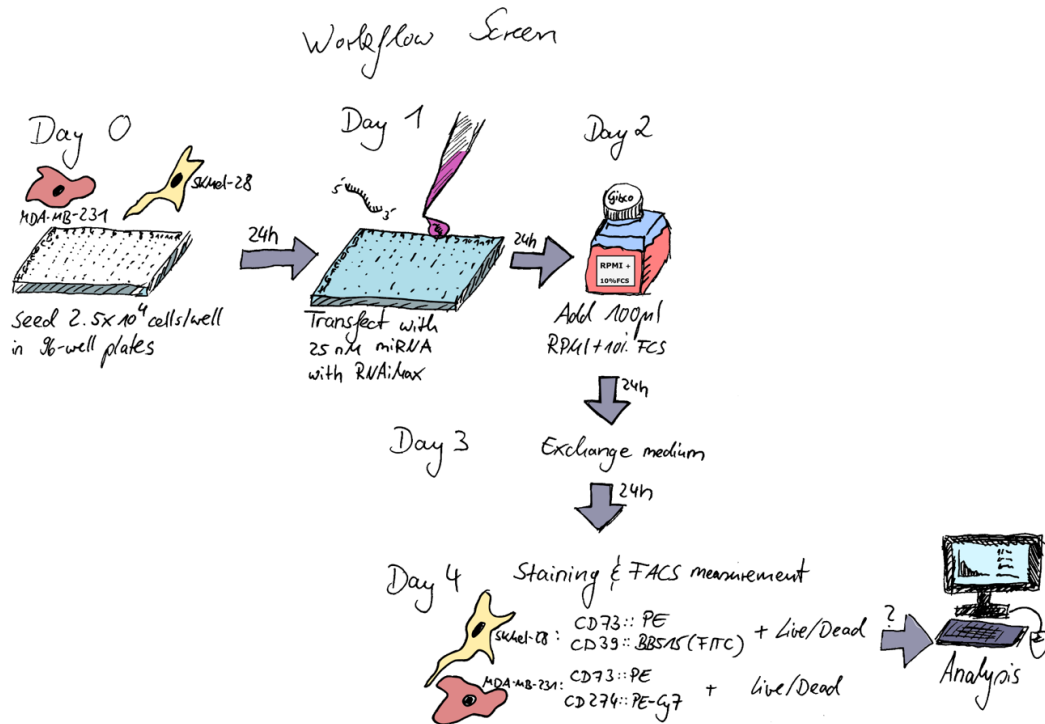 Workflow Screen
Day 0
MDA-MB-231
SKMel-28
Seed 2.5x10⁴ cells/well
in 96-well plates
24h
Day 1
5'
3'
Transfect with
25 nM miRNA
with RNAiMax
24h
Day 2
Gibco
RPMI +
10%FCS
Add 100µl
RPMI+10% FCS
24h
Day 3
Exchange medium
24h
Day 4
Staining & FACS measurement
SKMel-28:
CD73::PE
CD39::BB515(FITC)
+ Live/Dead
MDA-MB-231:
CD73::PE
CD274::PE-Cy7
+ Live/Dead
?
Analysis